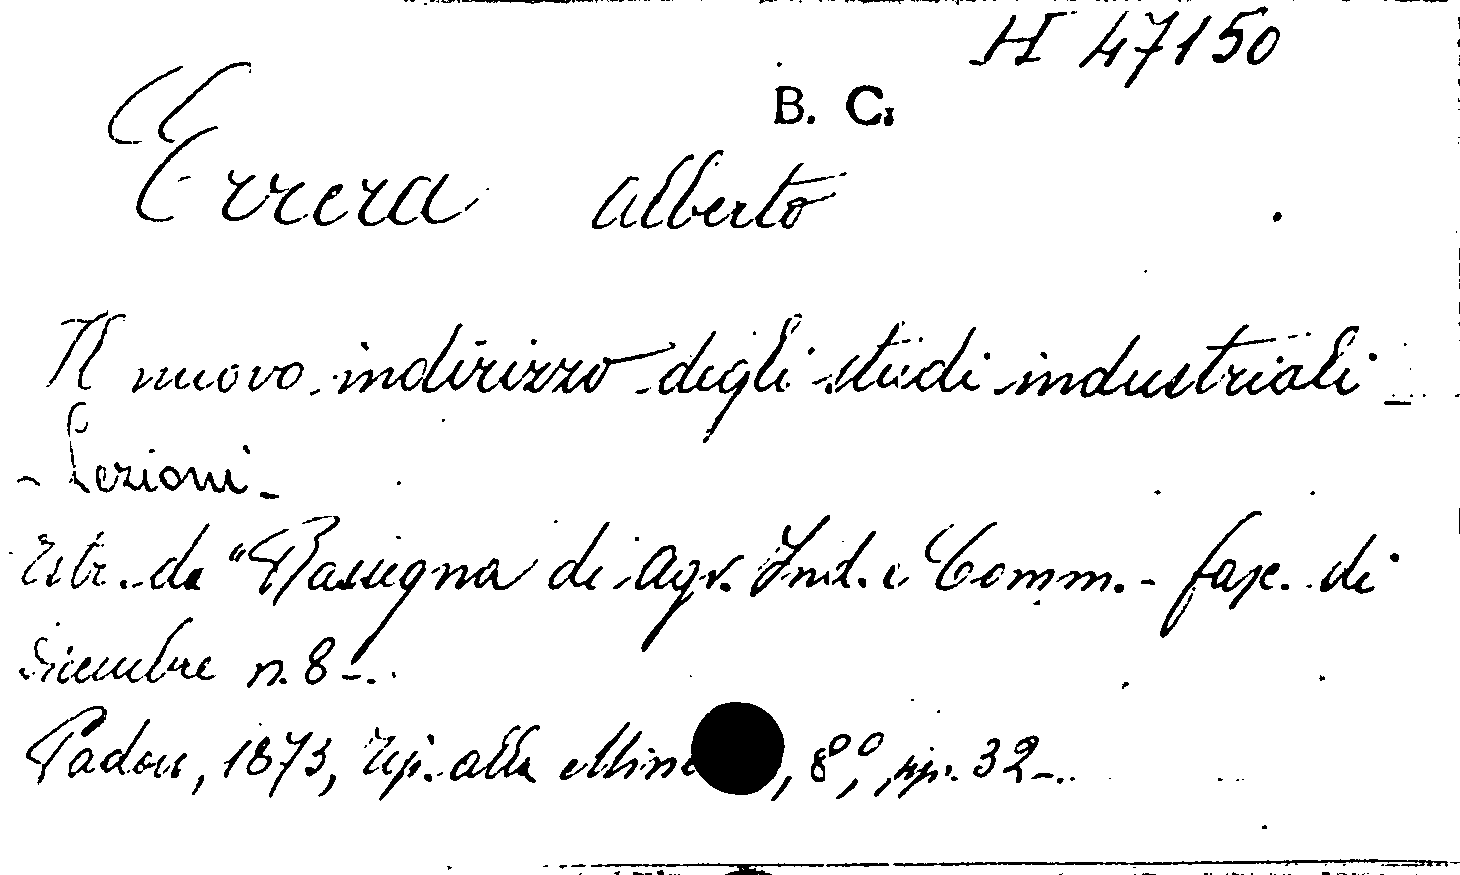 H 47150
B. C.
Errera Alberto
Il nuovo indirizzo degli studi industriali -
- Lezioni -
Estr. da "Rassegna di Agr. Ind. e Comm. - fasc. di
dicembre n. 8 -.
Padova, 1873, Tip. alla Mine , 8°, pp. 32 -.